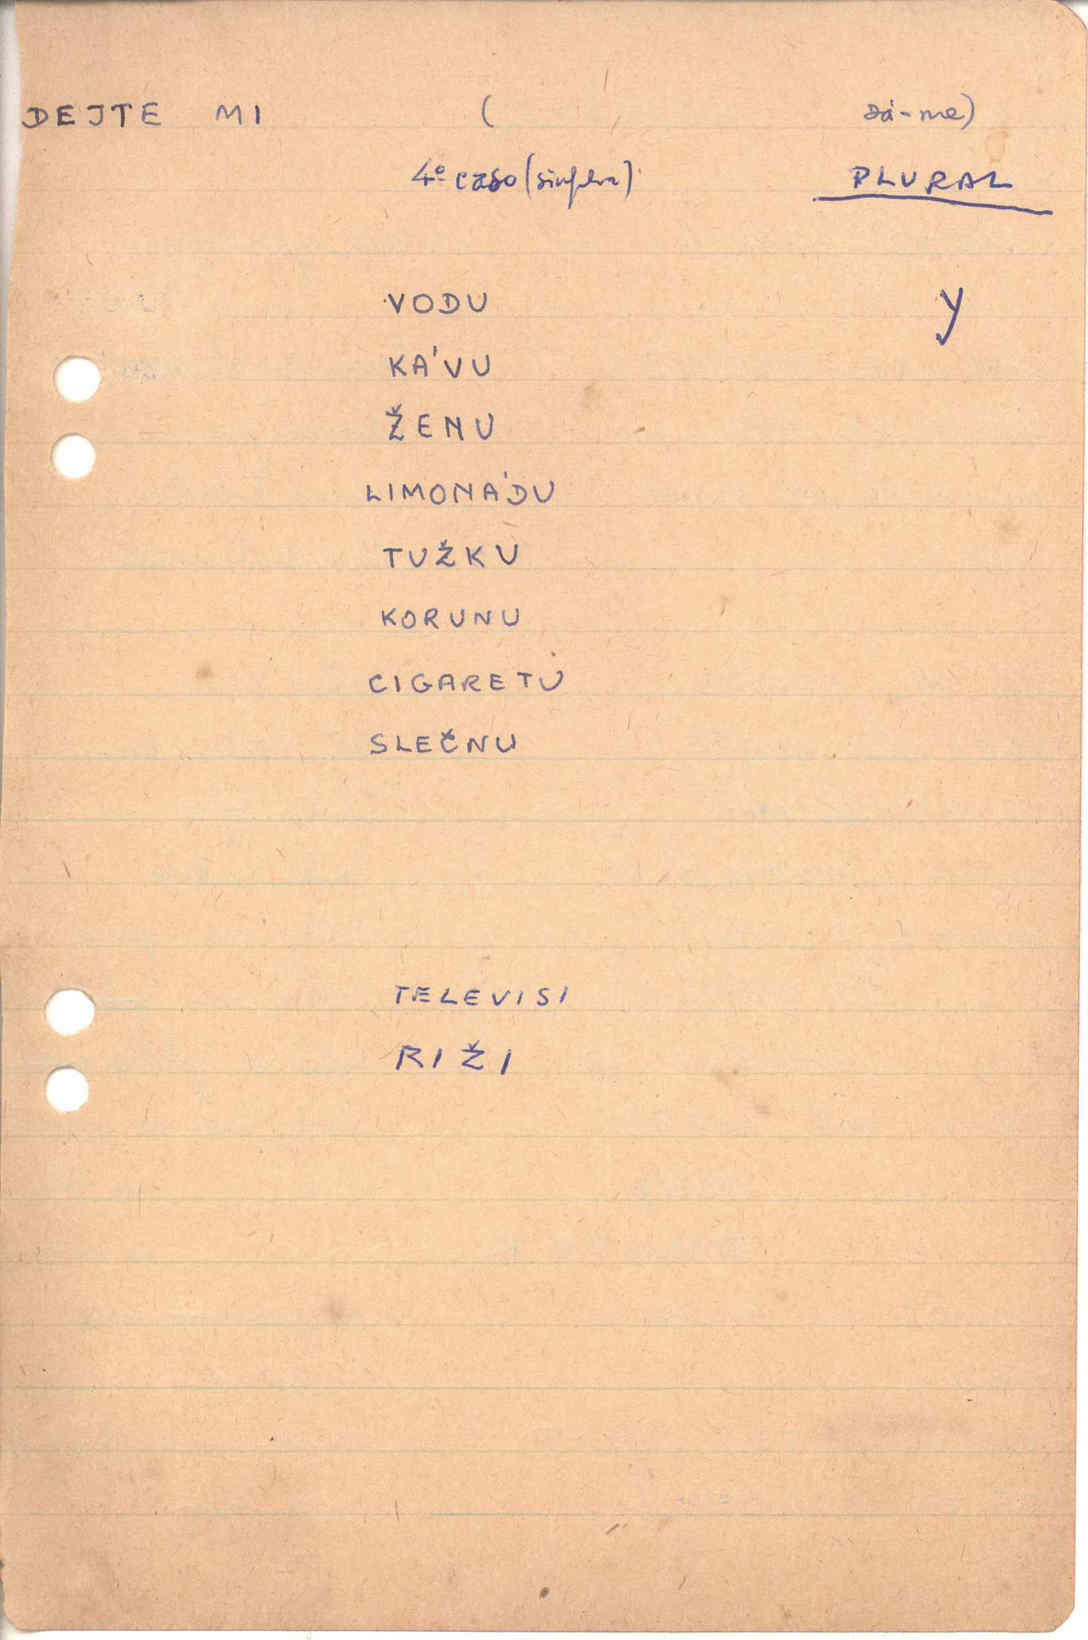 DEJTE MI ( dá-me)
4º caso (singular) PLURAL
VODU y
KÁVU
ŽENU
LIMONÁDU
TUŽKU
KORUNU
CIGARETU
SLEČNU
TELEVISI
RIŽI